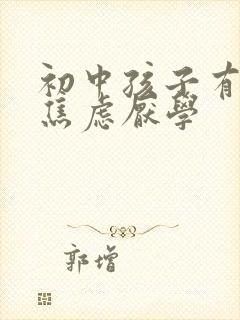 初中孩子有
焦虑厌學
郭增